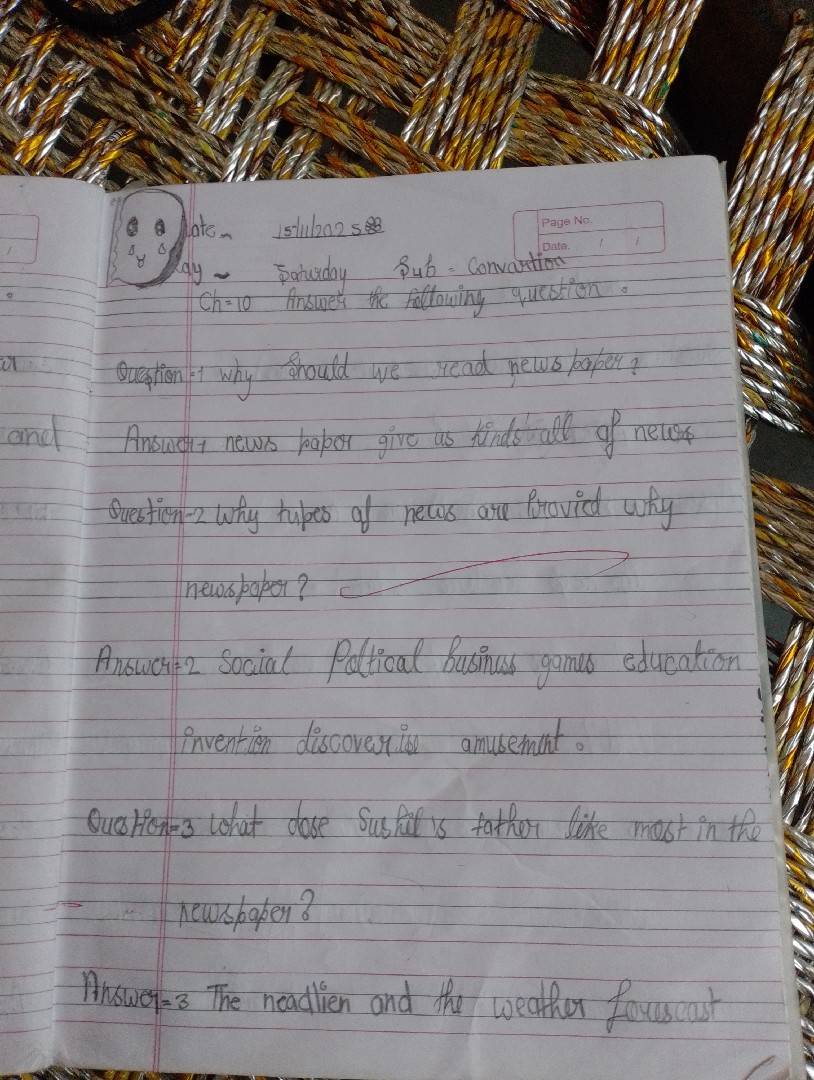 Page No.
Date. / /
Date~ 15/11/2025
Day ~ Saturday Sub = Convartion
Ch=10 Answer the following question.
Question-1 why should we read news paper?
Answer-1 news paper give us kinds all of news
and
Question-2 why types of news are Provied why
newspaper?
Answer=2 Social Poltical business games education
invention discoveris amusement.
Question=3 what dose Sushil's father like most in the
newspaper?
Answer=3 The neadlien and the weather forescast